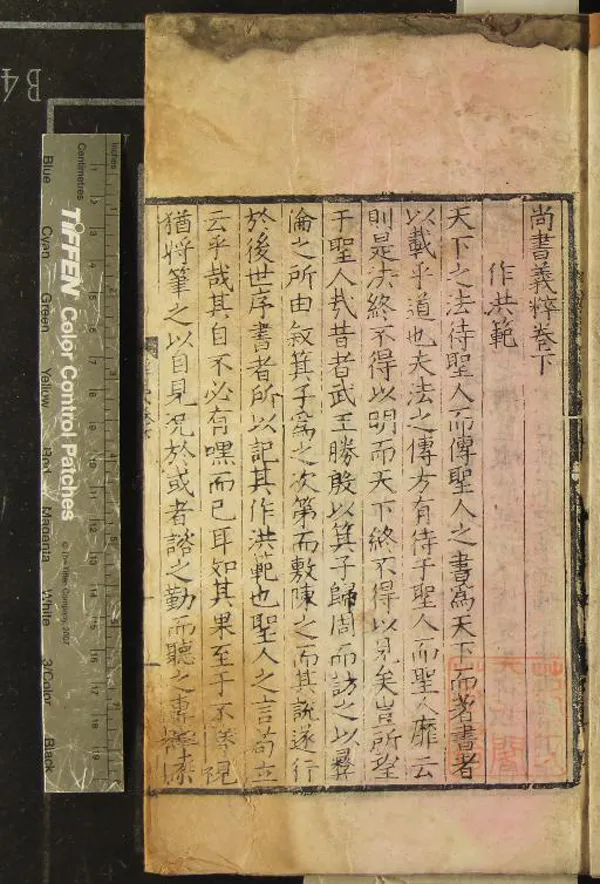 尚書義粹卷下
作洪範
天下之法待聖人而傳聖人之書爲天下而著書者
以載乎道也夫法之傳方有待于聖人而聖人靡云
則是法終不得以明而天下終不得以見矣豈所望
于聖人哉昔者武王勝殷以箕子歸周而訪之以彝
倫之所由敘箕子爲之次第而敷陳之而其說遂行
於後世序書者所以記其作洪範也聖人之言苟立
云乎哉其自不必有嘿而已耳知其果至于不 視
猶將筆之以自見況於或者諮之勤而聽之專
Inches
Centimetres
TIFFEN Color Control Patches
© The Tiffen Company, 2007
Blue
Cyan
Green
Yellow
Red
Magenta
White
3/Color
Black
B4